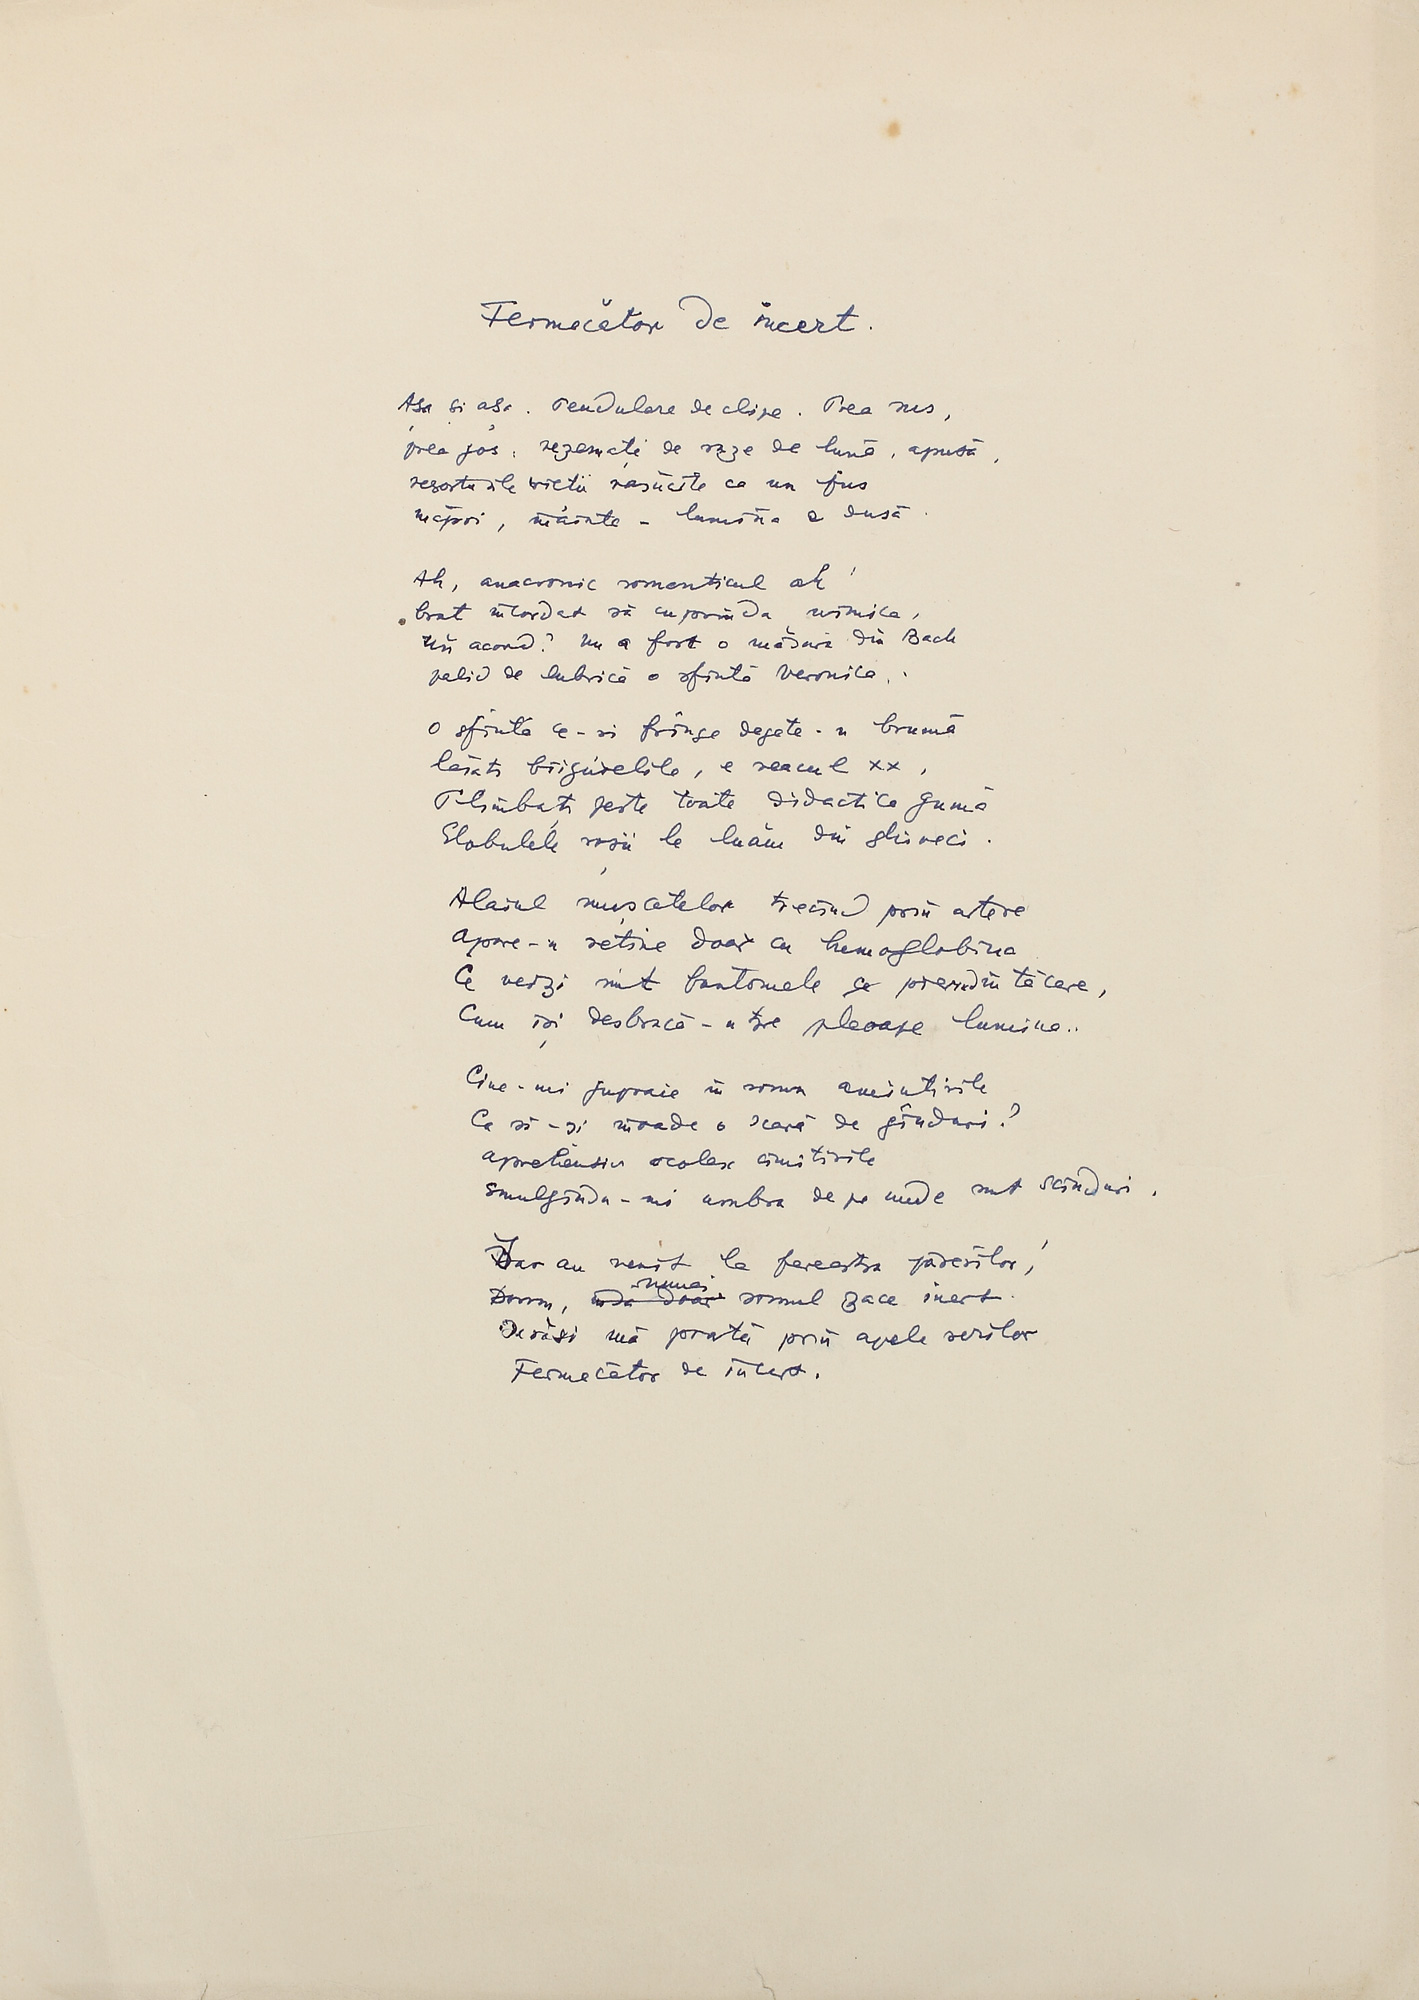 Fermecător de incert.
Așa și așa. Pendulare de clipe. Prea sus,
prea jos, rezemați de raze de lună, apusă,
resorturile vieții răsucite ca un fus
înapoi, înainte - lumina e dusă.
Ah, anacronic romanticul ah!
braț încordat să cuprindă nimica,
Un acord? Nu a fost o măsură din Bach
palid de lubrică o sfântă Veronica..
O sfîntă ce-și frînge degete-n brumă
lăsați , e veacul XX,
Plimbați peste toate didactica gumă
Globulele roșii le luăm din ghiveci.
Alaiul mușcatelor trecînd prin artere
apare-n retine doar cu hemoglobina
Ce verzi sînt fantomele ce pier în tăcere,
Cum își desbracă-ntre pleoape lumina..
Cine-mi jupoaie în somn amintirile
Ca să-și înnoade o scară de gînduri?
aprehensiv ocolesc cimitirile
Smulgîndu-mi umbra de pe unde sînt scînduri.
Iar au venit la fereastra pădurilor!
Dorm, numai somnul zace inert.
și mă poartă prin apele serilor
Fermecător de incert.